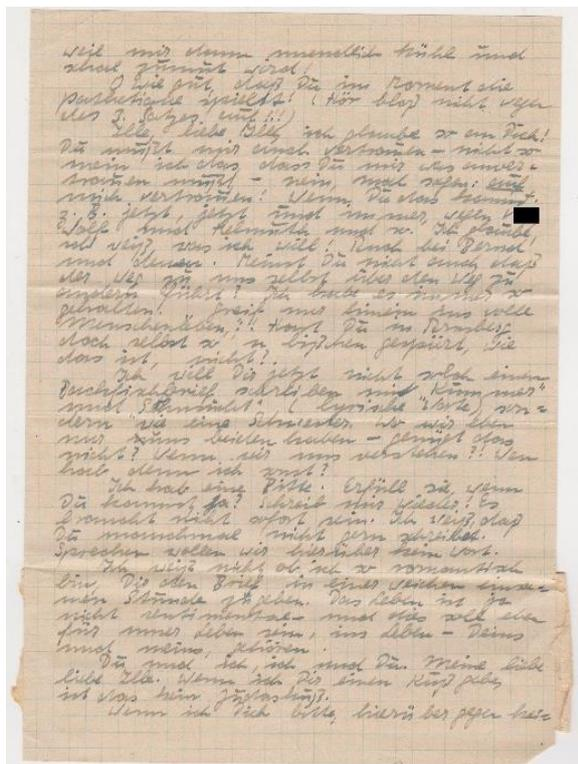 weil mir dann unendlich kühl und
schal zumut wird!
O wie gut, daß Du im Moment die
Pathetische spielst! (Hör bloß nicht wegen
des 3. Satzes auf!!!)
Ille, liebe Ille, ich glaube so an Dich!
Du mußt mir auch vertrauen – nicht so
mein ich das, dass Du mir was anver-
trauen mußt – nein,
mich vertrauen! Wenn Du das kannst.
z. B. jetzt, jetzt und immer, wegen
Wolf und Helmuth und so. Ich glaube,
ich weiß, was ich will! Auch bei Bernd
und denen. Meinst Du nicht auch daß
der Weg zu uns selbst über den Weg zu
andern führt? Ich habe es immer so
gehalten! Greif nur hinein ins volle
Menschenleben,!! Hast Du in
doch selbst so 'n bißchen gespürt, wie
das ist, nicht?
Ich will Dir jetzt nicht solch einen
Backfischbrief schreiben mit "Kummer"
und "Sehnsucht" (lyrische son-
dern wie eine Schwester. Wo wir eben
nur uns beiden haben – genügt das
nicht? Wenn wir uns verstehen?! Wen
hab denn ich sonst?
Ich hab eine Bitte. Erfüll sie, wenn
Du kannst, ja? Schreib mir wieder! Es
braucht nicht sofort sein. Ich weiß, daß
Du manchmal nicht gern schreibst.
Sprechen wollen wir hierüber kein Wort.
Ich weiß nicht ob ich so romantisch
bin, Dir den Brief in einer weichen einsa-
men Stunde zu geben. Das Leben ist ja
nicht sentimental – und das soll eben
für unser Leben sein, ins Leben – Deins
und meins, gehören.
Du und ich, ich und Du. Meine liebe
liebe Ille. Wenn ich Dir einen Kuß gebe,
ist das kein Judaskuß.
Wenn ich Dich bitte, hierüber gegen kei-